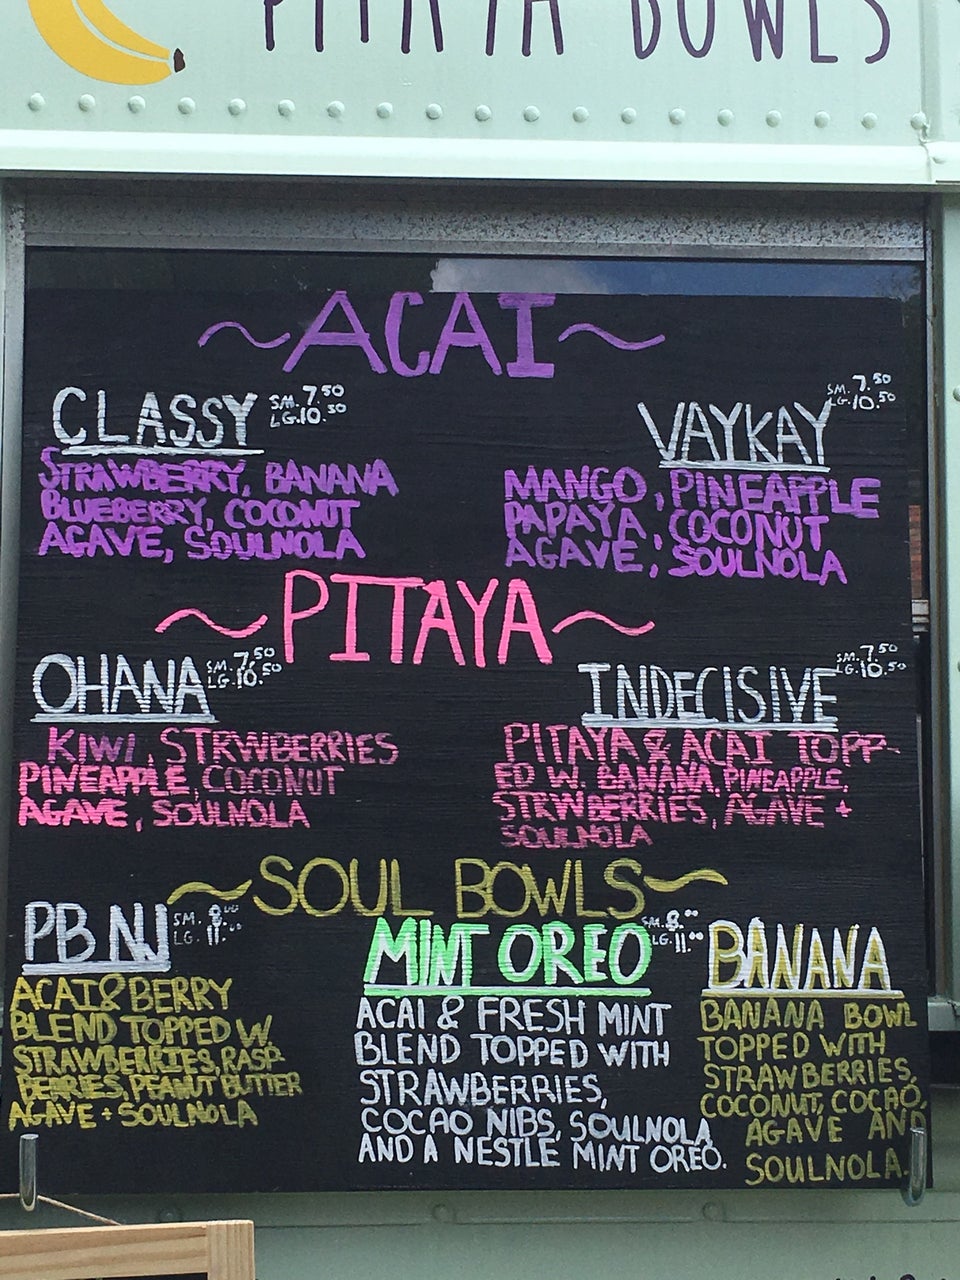 PITAYA BOWLS
~ACAI~
CLASSY SM. 7.50
LG. 10.50
STRAWBERRY, BANANA
BLUEBERRY, COCONUT
AGAVE, SOULNOLA
VAYKAY SM. 7.50
LG. 10.50
MANGO, PINEAPPLE
PAPAYA, COCONUT
AGAVE, SOULNOLA
~PITAYA~
OHANA SM. 7.50
LG. 10.50
KIWI, STRWBERRIES
PINEAPPLE, COCONUT
AGAVE, SOULNOLA
INDECISIVE SM. 7.50
LG. 10.50
PITAYA & ACAI TOPP-
ED W. BANANA, PINEAPPLE,
STRWBERRIES, AGAVE +
SOULNOLA
~SOUL BOWLS~
PB NJ SM. 8.00
LG. 11.00
ACAI & BERRY
BLEND TOPPED W.
STRAWBERRIES, RASP-
BERRIES, PEANUT BUTTER
AGAVE + SOULNOLA
MINT OREO SM. 8.00
LG. 11.00
ACAI & FRESH MINT
BLEND TOPPED WITH
STRAWBERRIES,
COCAO NIBS, SOULNOLA
AND A NESTLE MINT OREO.
BANANA
BANANA BOWL
TOPPED WITH
STRAWBERRIES,
COCONUT, COCAO,
AGAVE AND
SOULNOLA.